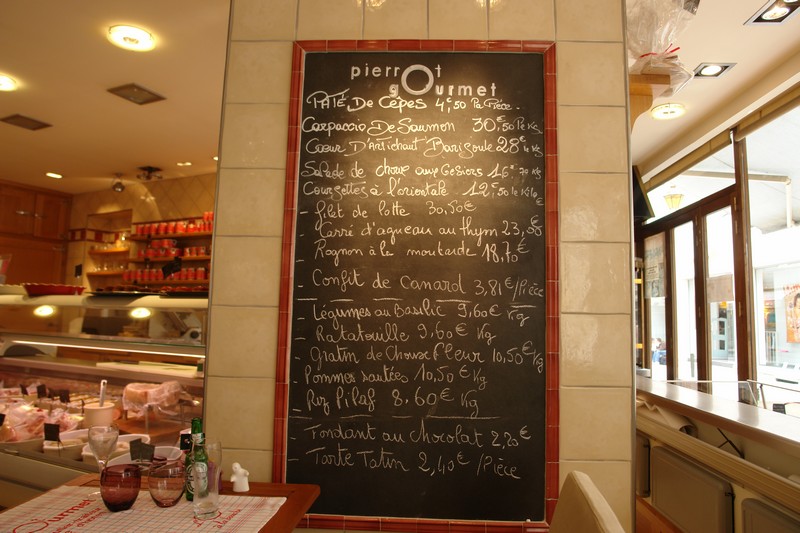 pierrot
gourmet
Pâté De Cèpes 4,50 La Pièce.
Carpaccio De Saumon 30,50 Le Kg
Cœur D'Artichaut Barigoule 28€ le Kg
Salade de choux aux Gesiers 16€,70 Kg
Courgettes à l'orientale 12€,50 le Kilo
- filet de lotte 30,50€
- Carré d'agneau au thym 23,50€
- Rognon à la moutarde 18,70€
- Confit de Canard 3,81€/Pièce
- Légumes au Basilic 9,60€ Kg
- Ratatouille 9,60€ Kg
- Gratin de Choux Fleur 10,50€ Kg
- Pommes sautées 10,50€ Kg
- Riz Pilaf 8,60€ Kg
- Fondant au chocolat 2,20€
- Tarte Tatin 2,40€ /Pièce
Gourmet